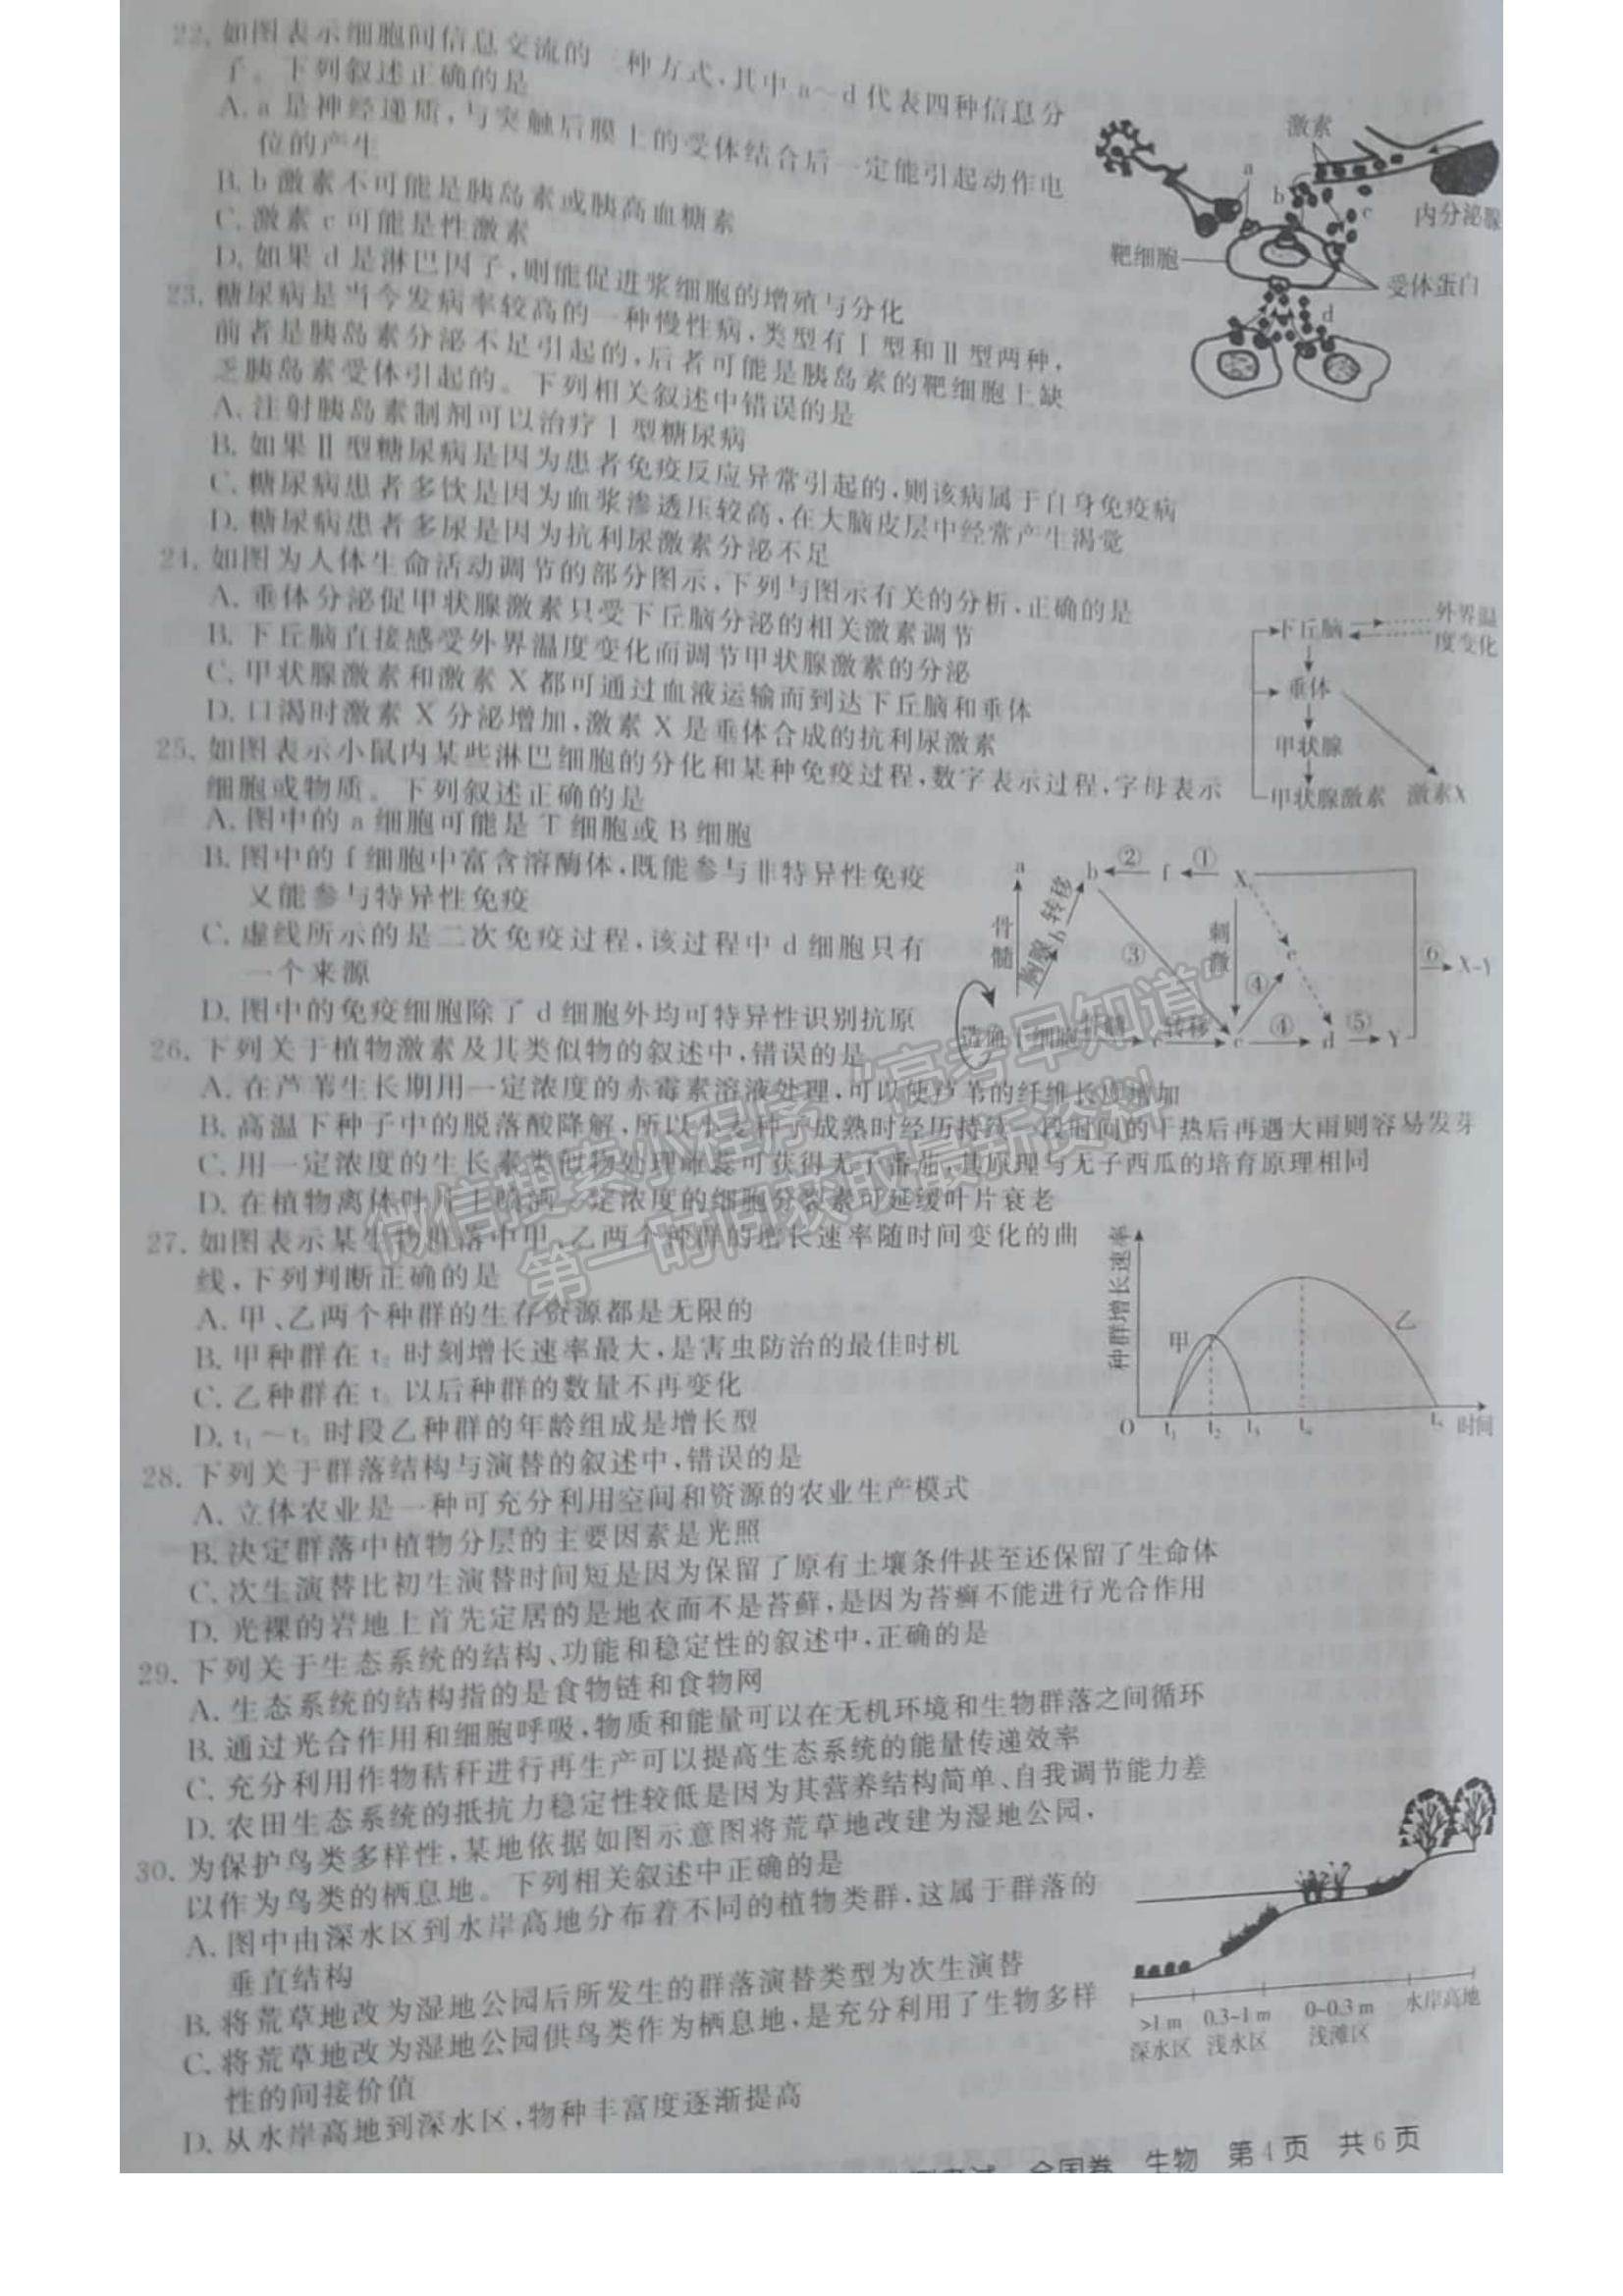 22. 如图表示细胞间信息交流的三种方式,其中a~d代表四种信息分
子。下列叙述正确的是
A. a是神经递质,与突触后膜上的受体结合后一定能引起动作电
位的产生
B. b激素不可能是胰岛素或胰高血糖素
C. 激素c可能是性激素
D. 如果d是淋巴因子,则能促进浆细胞的增殖与分化
激素
a
b
c
内分泌腺
靶细胞
受体蛋白
d
23. 糖尿病是当今发病率较高的一种慢性病,类型有Ⅰ型和Ⅱ型两种,
前者是胰岛素分泌不足引起的,后者可能是胰岛素的靶细胞上缺
乏胰岛素受体引起的。下列相关叙述中错误的是
A. 注射胰岛素制剂可以治疗Ⅰ型糖尿病
B. 如果Ⅱ型糖尿病是因为患者免疫反应异常引起的,则该病属于自身免疫病
C. 糖尿病患者多饮是因为血浆渗透压较高,在大脑皮层中经常产生渴觉
D. 糖尿病患者多尿是因为抗利尿激素分泌不足
24. 如图为人体生命活动调节的部分图示,下列与图示有关的分析,正确的是
A. 垂体分泌促甲状腺激素只受下丘脑分泌的相关激素调节
B. 下丘脑直接感受外界温度变化而调节甲状腺激素的分泌
C. 甲状腺激素和激素X都可通过血液运输而到达下丘脑和垂体
D. 口渴时激素X分泌增加,激素X是垂体合成的抗利尿激素
下丘脑
外界温
度变化
垂体
甲状腺
甲状腺激素 激素X
25. 如图表示小鼠内某些淋巴细胞的分化和某种免疫过程,数字表示过程,字母表示
细胞或物质。下列叙述正确的是
A. 图中的a细胞可能是T细胞或B细胞
B. 图中的f细胞中富含溶酶体,既能参与非特异性免疫
又能参与特异性免疫
C. 虚线所示的是二次免疫过程,该过程中d细胞只有
一个来源
D. 图中的免疫细胞除了d细胞外均可特异性识别抗原
a
b ② f ① X
骨髓
胸腺 b 转移
③
刺激
e
④
⑥ X-Y
造血干细胞 骨髓 转移 c ④ d ⑤ Y
26. 下列关于植物激素及其类似物的叙述中,错误的是
A. 在芦苇生长期用一定浓度的赤霉素溶液处理,可以使芦苇的纤维长度增加
B. 高温下种子中的脱落酸降解,所以小麦种子成熟时经历持续一段时间的干热后再遇大雨则容易发芽
C. 用一定浓度的生长素类似物处理雌蕊可获得无子番茄,其原理与无子西瓜的培育原理相同
D. 在植物离体叶片上喷洒一定浓度的细胞分裂素可延缓叶片衰老
微信搜索小程序“高考早知道”
第一时间获取最新资料
27. 如图表示某生物群落中甲、乙两个种群的增长速率随时间变化的曲
线,下列判断正确的是
A. 甲、乙两个种群的生存资源都是无限的
B. 甲种群在t₂时刻增长速率最大,是害虫防治的最佳时机
C. 乙种群在t₅以后种群的数量不再变化
D. t₁~t₃时段乙种群的年龄组成是增长型
种群增长速率
甲
乙
O t₁ t₂ t₃ t₄ t₅ 时间
28. 下列关于群落结构与演替的叙述中,错误的是
A. 立体农业是一种可充分利用空间和资源的农业生产模式
B. 决定群落中植物分层的主要因素是光照
C. 次生演替比初生演替时间短是因为保留了原有土壤条件甚至还保留了生命体
D. 光裸的岩地上首先定居的是地衣而不是苔藓,是因为苔癣不能进行光合作用
29. 下列关于生态系统的结构、功能和稳定性的叙述中,正确的是
A. 生态系统的结构指的是食物链和食物网
B. 通过光合作用和细胞呼吸,物质和能量可以在无机环境和生物群落之间循环
C. 充分利用作物秸秆进行再生产可以提高生态系统的能量传递效率
D. 农田生态系统的抵抗力稳定性较低是因为其营养结构简单、自我调节能力差
30. 为保护鸟类多样性,某地依据如图示意图将荒草地改建为湿地公园,
以作为鸟类的栖息地。下列相关叙述中正确的是
A. 图中由深水区到水岸高地分布着不同的植物类群,这属于群落的
垂直结构
B. 将荒草地改为湿地公园后所发生的群落演替类型为次生演替
C. 将荒草地改为湿地公园供鸟类作为栖息地,是充分利用了生物多样
性的间接价值
D. 从水岸高地到深水区,物种丰富度逐渐提高
>1 m 0.3~1 m 0~0.3 m 水岸高地
深水区 浅水区 浅滩区
全国卷 生物 第4页 共6页